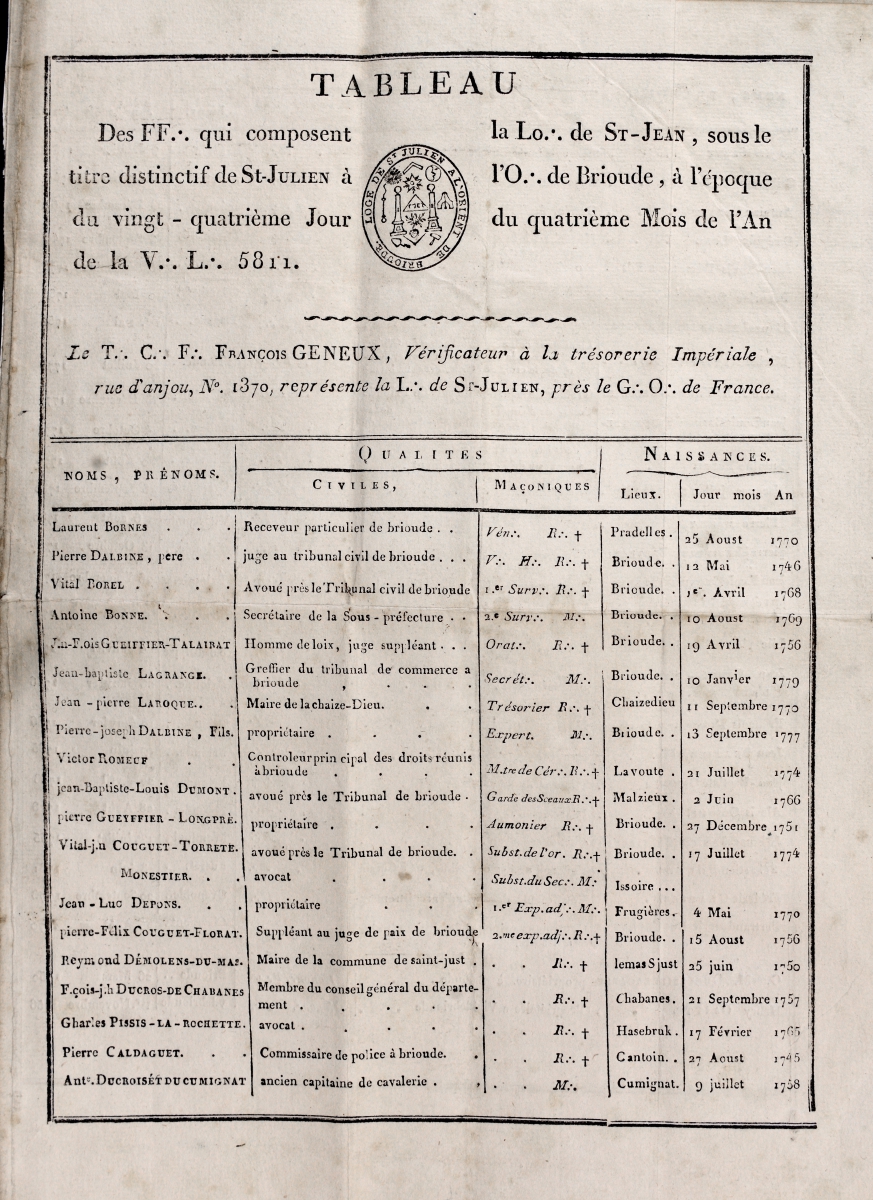 TABLEAU
Des FF∴ qui composent la Lo∴ de St-Jean, sous le
titre distinctif de St-Julien à l'O∴ de Brioude, à l'époque
du vingt-quatrième Jour du quatrième Mois de l'An
de la V∴ L∴ 5811.
LOGE DE St JULIEN A L'ORIENT DE BRIOUDE
Le T∴ C∴ F∴ François GENEUX, Vérificateur à la trésorerie Impériale,
rue d'anjou, No. 1370, représente la L∴ de St-Julien, près le G∴ O∴ de France.
NOMS, PRÉNOMS. QUALITÉS NAISSANCES.
CIVILES, MAÇONIQUES Lieux. Jour mois An
Laurent Bornes . . . Receveur particulier de brioude . . Vén∴ R∴ † Pradelles. 25 Aoust 1770
Pierre Dalbine, pere . . juge au tribunal civil de brioude . . . V∴ H∴ R∴ † Brioude. . 12 Mai 1746
Vital Borel . . . . Avoué près le Tribunal civil de brioude 1.er Surv∴ R∴ † Brioude. . 1er. Avril 1768
Antoine Bonne. . . . Secrétaire de la Sous-préfecture . . 2.e Surv∴ M∴ Brioude. . 10 Aoust 1769
J.n-F.ois Gueiffier-Talairat Homme de loix, juge suppléant . . . Orat∴ R∴ † Brioude. . 19 Avril 1756
Jean-baptiste Lagrange. . Greffier du tribunal de commerce a
brioude , . . . Secrét∴ M∴ Brioude. . 10 Janvier 1779
Jean-pierre Laroque.. . Maire de la chaize-Dieu. . . Trésorier R∴ † Chaizedieu 11 Septembre 1770
Pierre-joseph Dalbine, Fils. propriétaire . . . . Expert. M∴ Brioude. . 13 Septembre 1777
Victor Romeuf . . Controleur prin cipal des droits réunis
à brioude . . . . M.tre de Cér∴ R∴ † Lavoute . 21 Juillet 1774
jean-Baptiste-Louis Dumont. avoué près le Tribunal de brioude . Garde des Sceaux R∴ † Malzieux. 2 Juin 1766
pierre Gueyffier-Longpré. propriétaire . . . . Aumonier R∴ † Brioude. . 27 Décembre 1751
Vital-j.n Couguet-Torrete. avoué près le Tribunal de brioude. . Subst. de l'or. R∴ † Brioude. . 17 Juillet 1774
Monestier. . . avocat . . . . Subst. du Sec∴ M∴ Issoire ...
Jean-Luc Depons. . . propriétaire . . . 1.er Exp. adj∴ M∴ Frugières. 4 Mai 1770
pierre-Félix Couguet-Florat. Suppléant au juge de paix de brioude 2.me exp. adj∴ R∴ † Brioude. . 15 Aoust 1756
Reymond Démolens-du-mas. Maire de la commune de saint-just . . . R∴ † lemas S just 25 juin 1750
F.çois-j.h Ducros-de Chabanes Membre du conseil général du départe-
ment . . . . . . R∴ † Chabanes. 21 Septembre 1757
Charles Pissis-la-Rochette. avocat . . . . . . R∴ † Hasebruk. 17 Février 1765
Pierre Caldaguet. . . Commissaire de police à brioude. . . . R∴ † Cantoin. . 27 Aoust 1745
Ant.e. Ducroisét Ducumignat ancien capitaine de cavalerie . , . . M∴ Cumignat. 9 juillet 1758